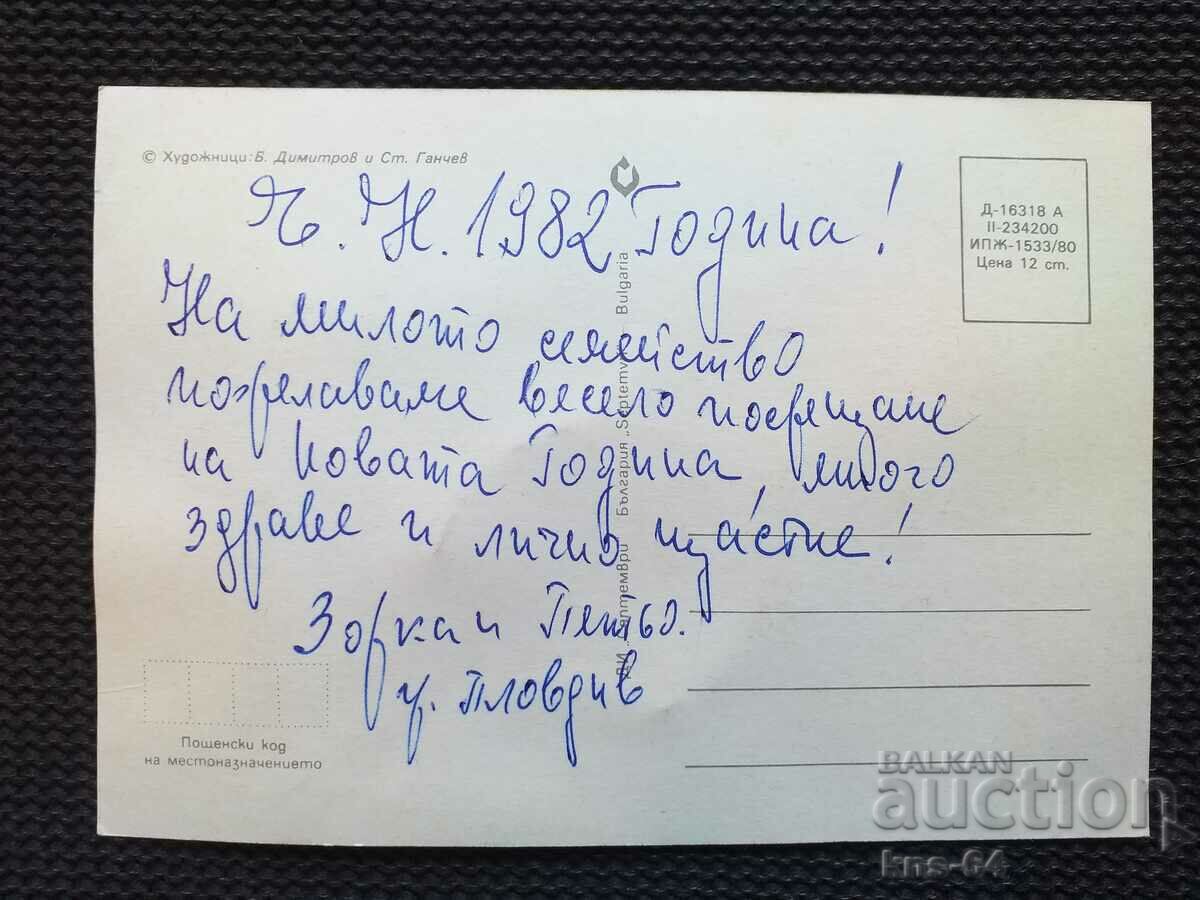 © Художници: Б. Димитров и Ст. Ганчев
Ч. Н. 1982 Година!
На милото семейство
пожелаваме весело посрещане
на Новата Година, много
здраве и лично щастие!
Зорка и Петьо.
гр. Пловдив
Д-16318 А
II-234200
ИПЖ-1533/80
Цена 12 ст.
ДИ „Септември България „Septemvri Bulgaria
Пощенски код
на местоназначението
BALKAN
auction
kns-64